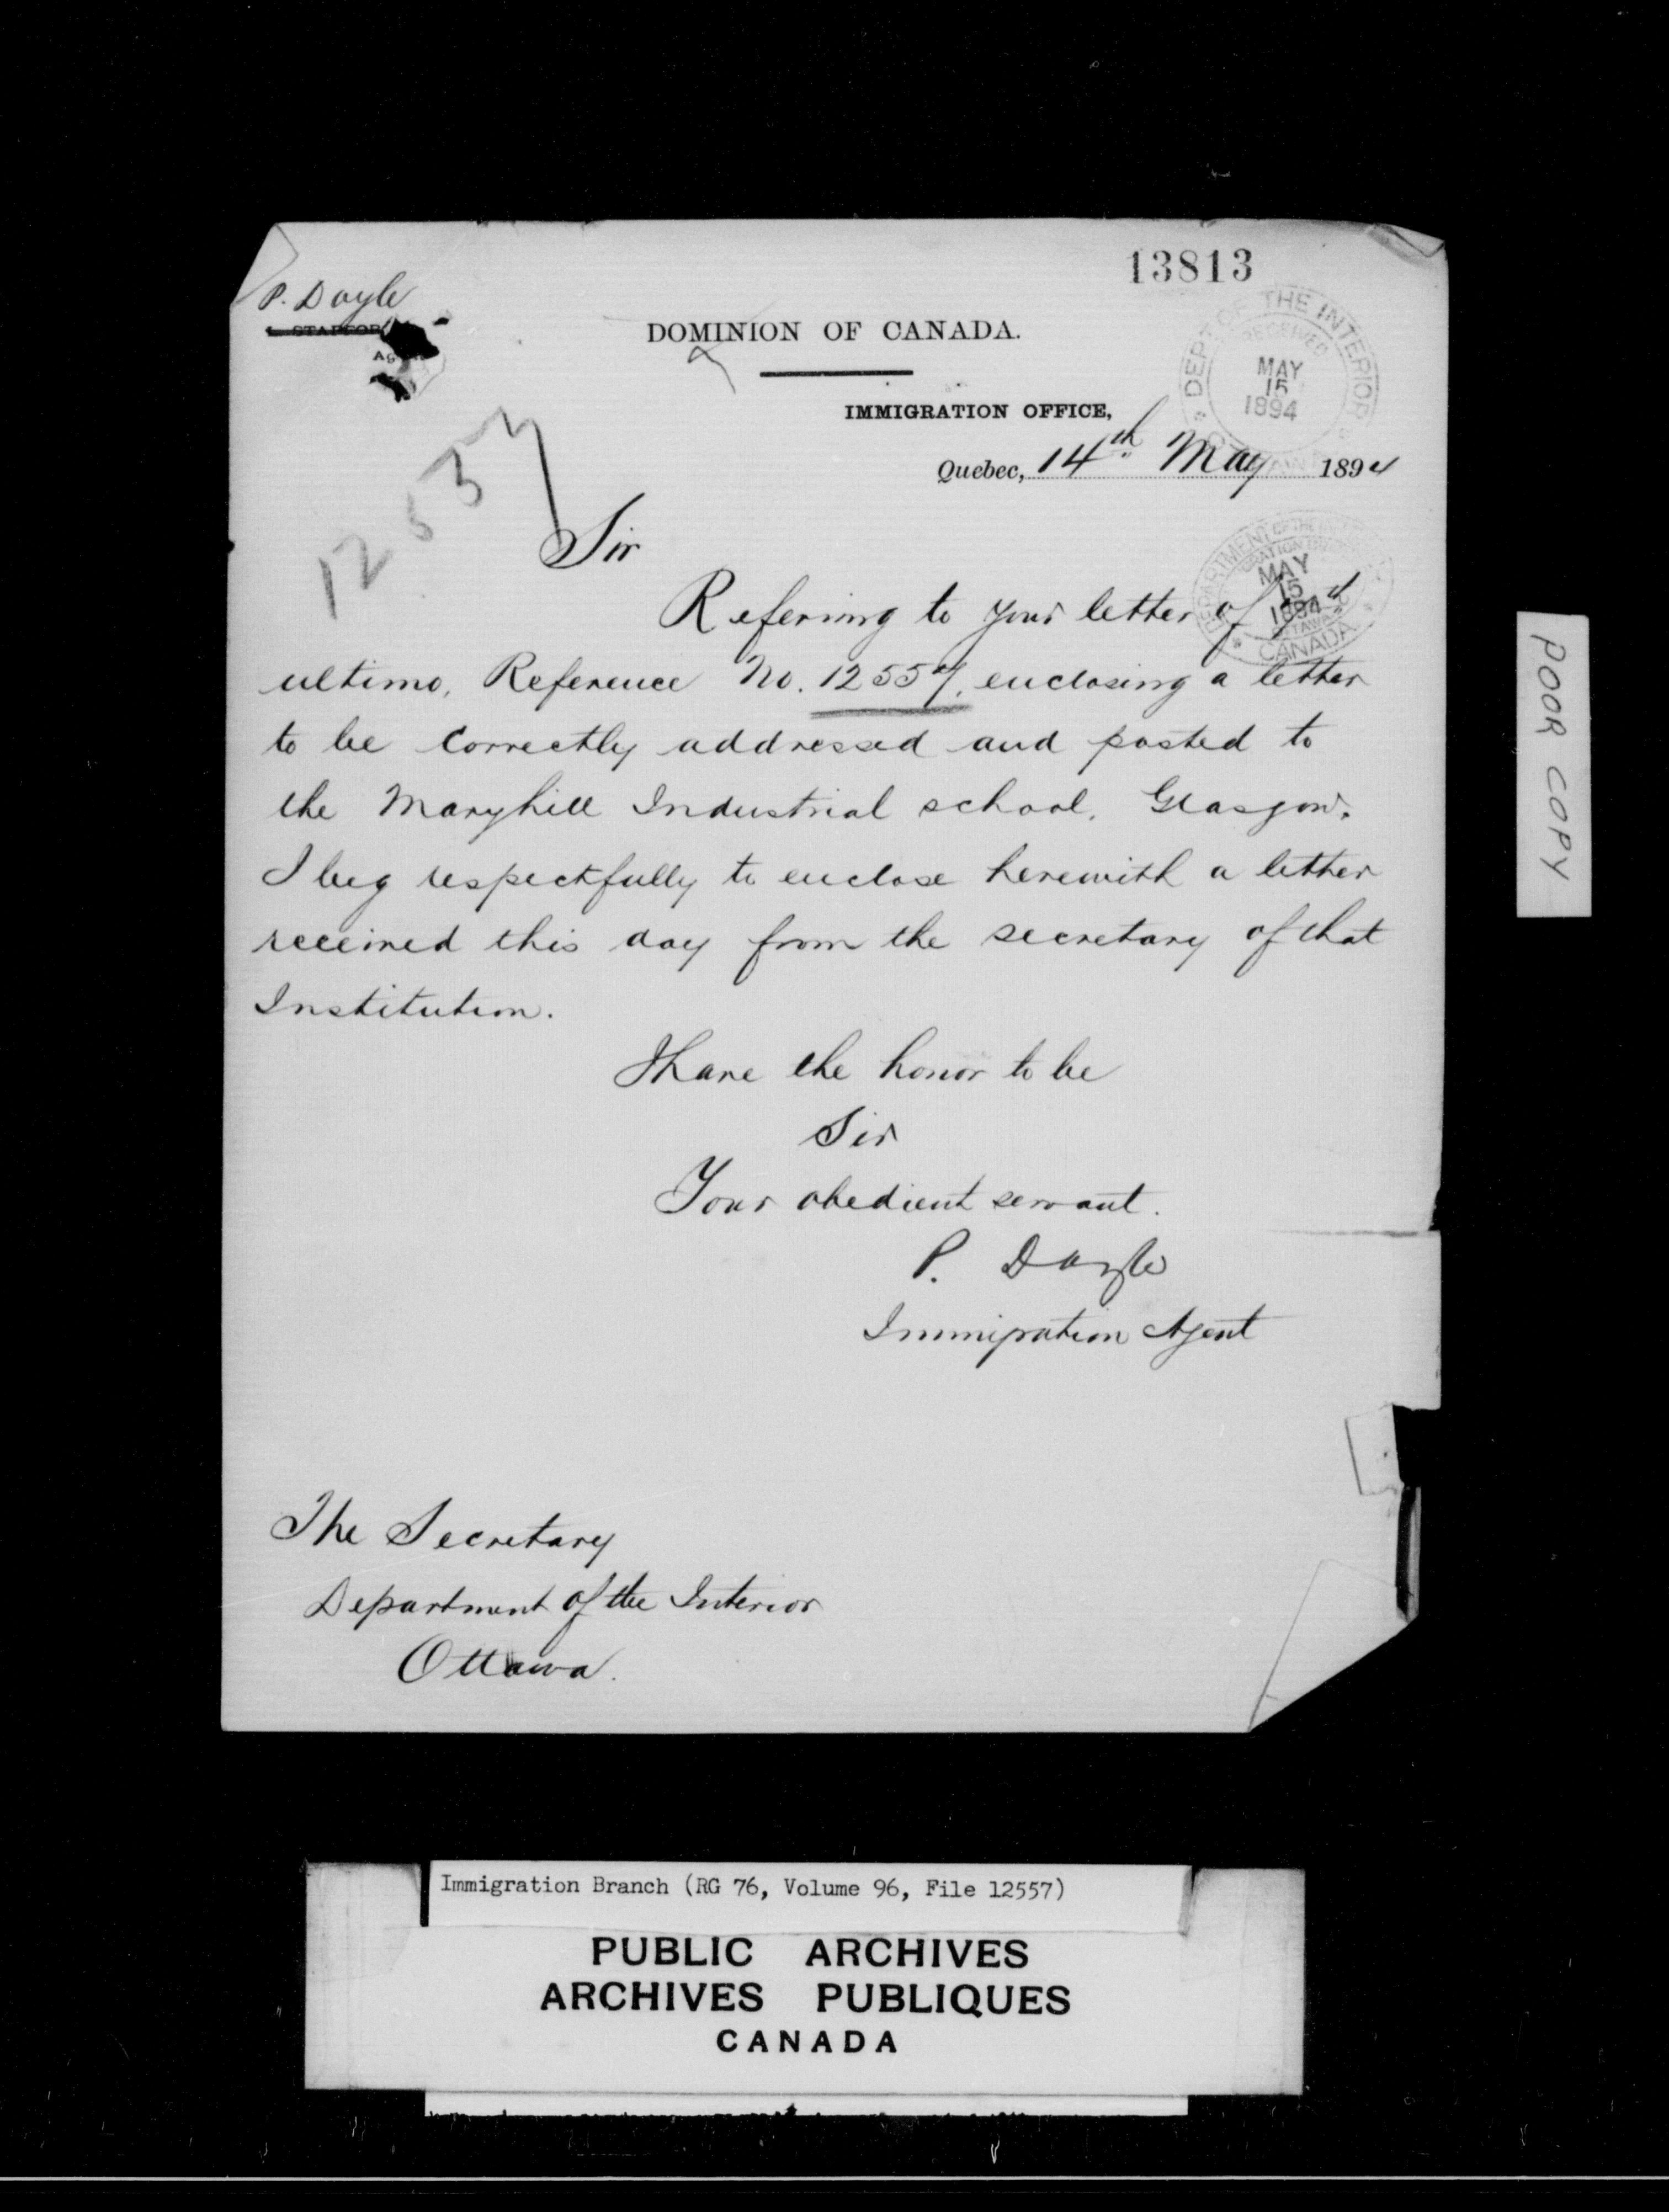 13813
P. Doyle
DOMINION OF CANADA.
DEPT OF THE INTERIOR
RECEIVED
MAY
15
1894
IMMIGRATION OFFICE,
Quebec, 14th May 1894
12557
Sir
MAY
15
1894
OTTAWA
CANADA
Refering to your letter of
ultimo, Reference No. 12557, enclosing a letter
to be correctly addressed and posted to
the Maryhill Industrial school, Glasgow.
I beg respectfully to enclose herewith a letter
received this day from the secretary of that
Institution.
I have the honor to be
Sir
Your obedient servant.
P. Doyle
Immigration Agent
The Secretary
Department of the Interior
Ottawa.
POOR COPY
Immigration Branch (RG 76, Volume 96, File 12557)
PUBLIC ARCHIVES
ARCHIVES PUBLIQUES
CANADA